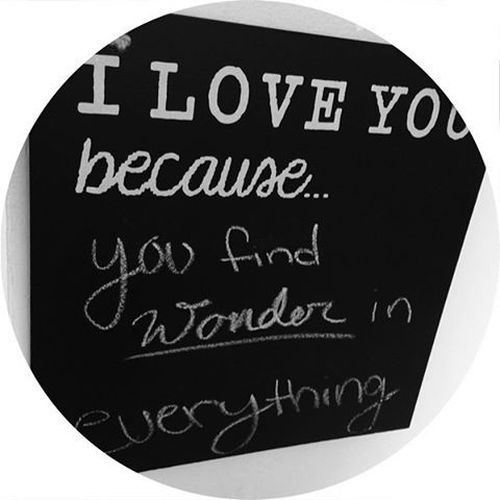 I LOVE YOU
because...
you find
wonder in
everything